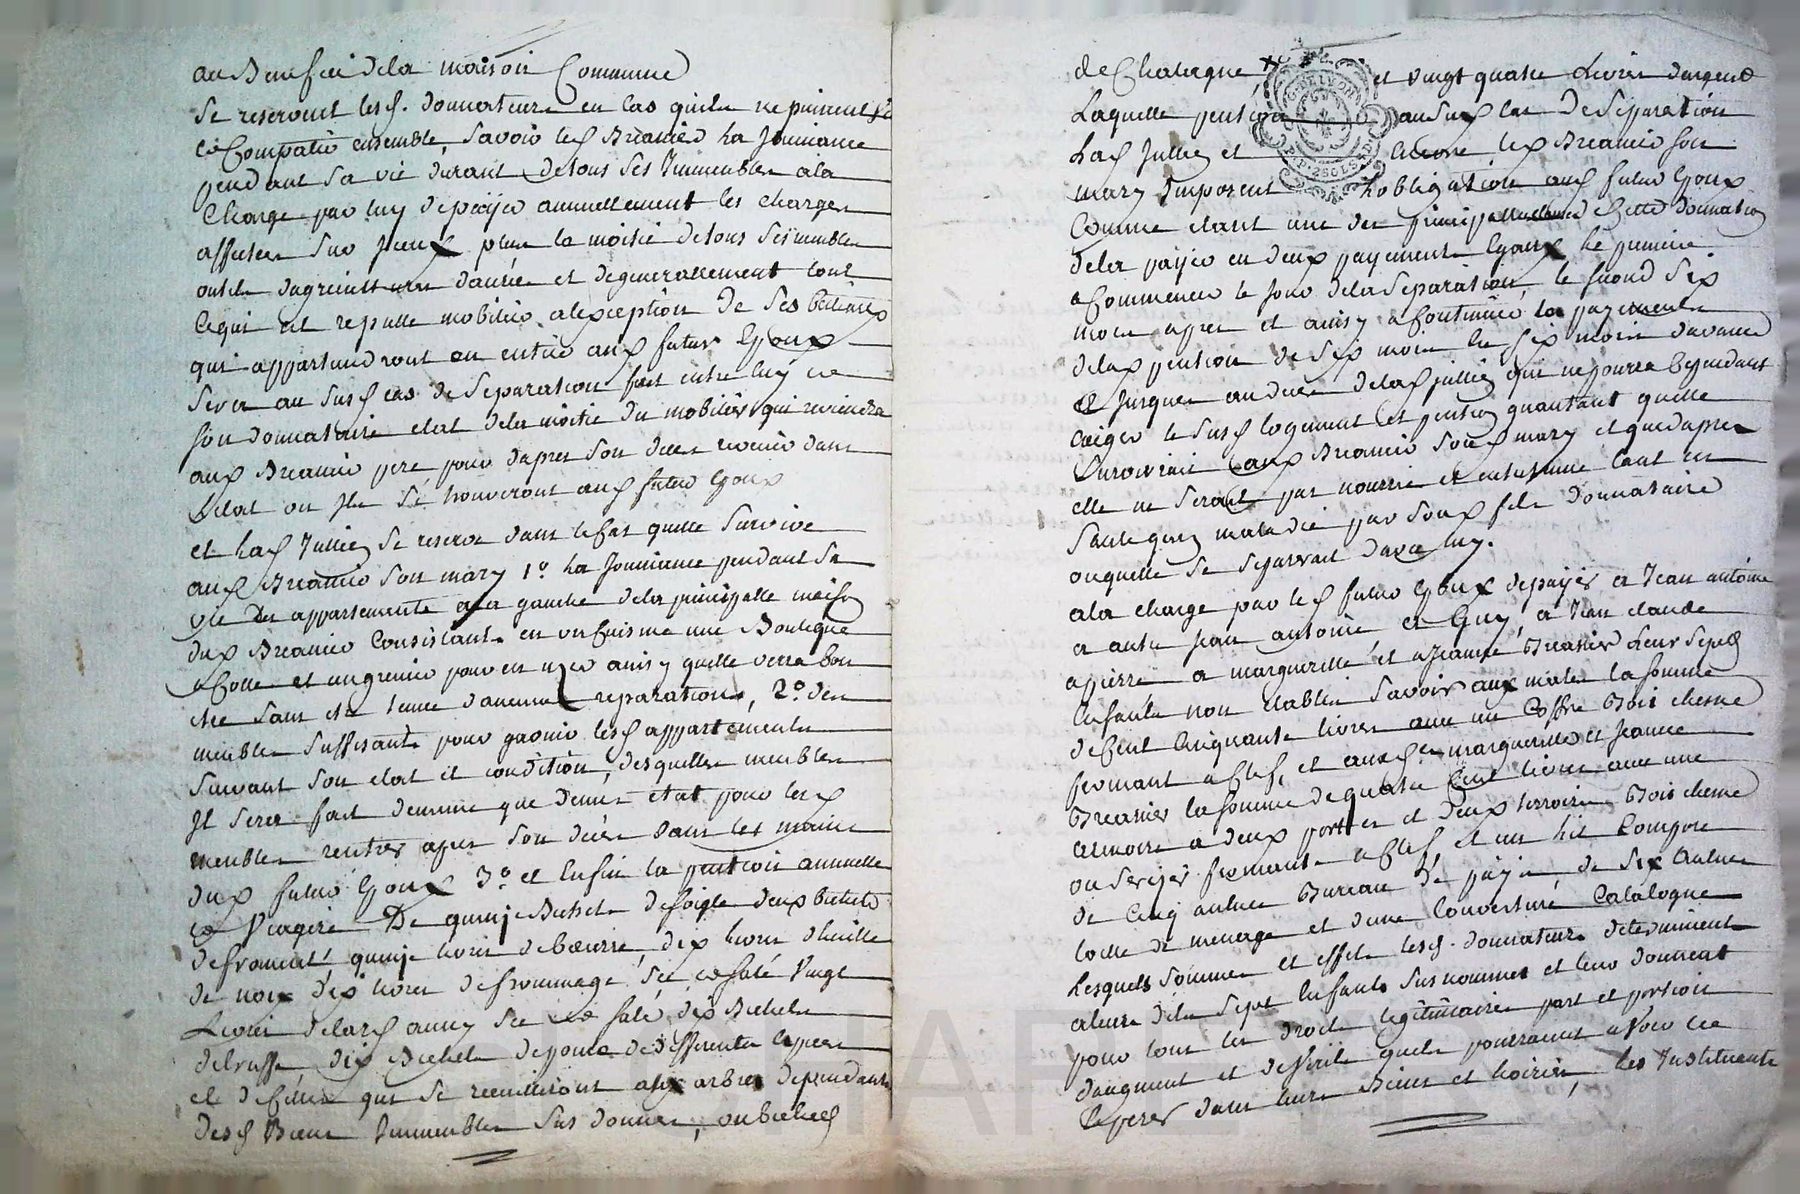 au Benefice dela maison Commune
se reservent lesd. donnateurs en cas quils ne puissent se
Compatir ensemble, savoir led Breanier La Jouissance
pendant sa vie durant de tous ses Immeubles ala
Charge par luy de payer annuellement les charges
affectées sur Iceux plus la moitié de tous ses meubles
outils dagriculture danrée et de generallement tout
cequi est reputté mobilier alexception de ses bestiaux
qui appartiendront en entier aux futurs Epoux
sera au susd cas de Separation fait entre luy et
son donnataire etat dela moitié du mobilier qui reviendra
aud Breanier pere pour dapres son deces revenir dans
Letat ou Ils se trouveront aud futur Epoux
et Lad Jullien se reserve dans le cas quelle survive
aud Breanier son mary 1º. La Jouissance pendant sa
vie des appartements a la gauche dela principalle maison
dud Breanier Consistants en un Cuisine une Boutique
a Coté et un grenier pour en user ainsy quelle verra bon
etre sans etre tenue daucunes reparations, 2º des
meubles suffisants pour garnir lesd appartements
suivant son etat et condition, desquelles meubles
Il sera fait de meme que dernier etat pour lesd
meubles rentrer apres son deces dans les mains
dud futur Epoux 3º. et Enfin la pention annuelle
et Viagere De quinze Bichets de seigle deux bichets
de froment, quinze livres de beurre, dix livres dhuille
de noix dix livres de frommage sec et salé Vingt
Livres de lard aussy sec et salé dix Bichets
de truffe, dix Bichets de poires de differentes especes
et de Celles qui se recueilliront aux arbres dependants
desd Biens Immeubles sus donnés, ou bichets
de Chataigne et vingt quatre Livres dargent
Laquelle pention au susd cas De Separation
Lad Jullien et led Breanier son
mary Imposent Lobligation aud futur Epoux
Comme etant une des principalles de Cette donnation
dela payer en deux payements Egaux Le premier
a Commencer le Jour dela Separation, le second six
mois apres et ainsy a Continuer les payements
delad pention de six mois en six mois davance
et Jusques au deces delad Jullien qui ne pourra Cependant
exiger le susd logement et pention quautant quelle
survivrait aud Breanier son mary et quedapres
elle ne serait pas nourrie et entretenue tant en
santé quen maladie par soud fils donnataire
ouquelle se separrait davec luy.
ala charge par led futur Epoux de payer a Jean antoine
a autre Jean antoine et Guy, a Jean claude
a pierre a margueritte et a Jeanne Breanier Leurs sept
Enfants non etablis savoir aux males la somme
de Cent Cinquante livres avec un Coffre Bois chesne
fermant a Clef, et auxd. margueritte et Jeanne
Breanier la somme de quatre Cent livres avec une
armoire a deux portes et deux tirroirs Bois chesne
ou serisier fermant a Clef, et un lit Composé
de Cinq aulnes Bureau de païs de six aulnes
toille de menage et dune Couverture Catalogne
Lesquels sommes et effets lesd. donnateurs determinent
aleurs dits sept Enfants susnommes et leur donnent
pour tout les droits legitimaires part et portion
daugment et de virile quels pourraient avoir et
Esperer dans leurs Biens et hoiries, les Instituants